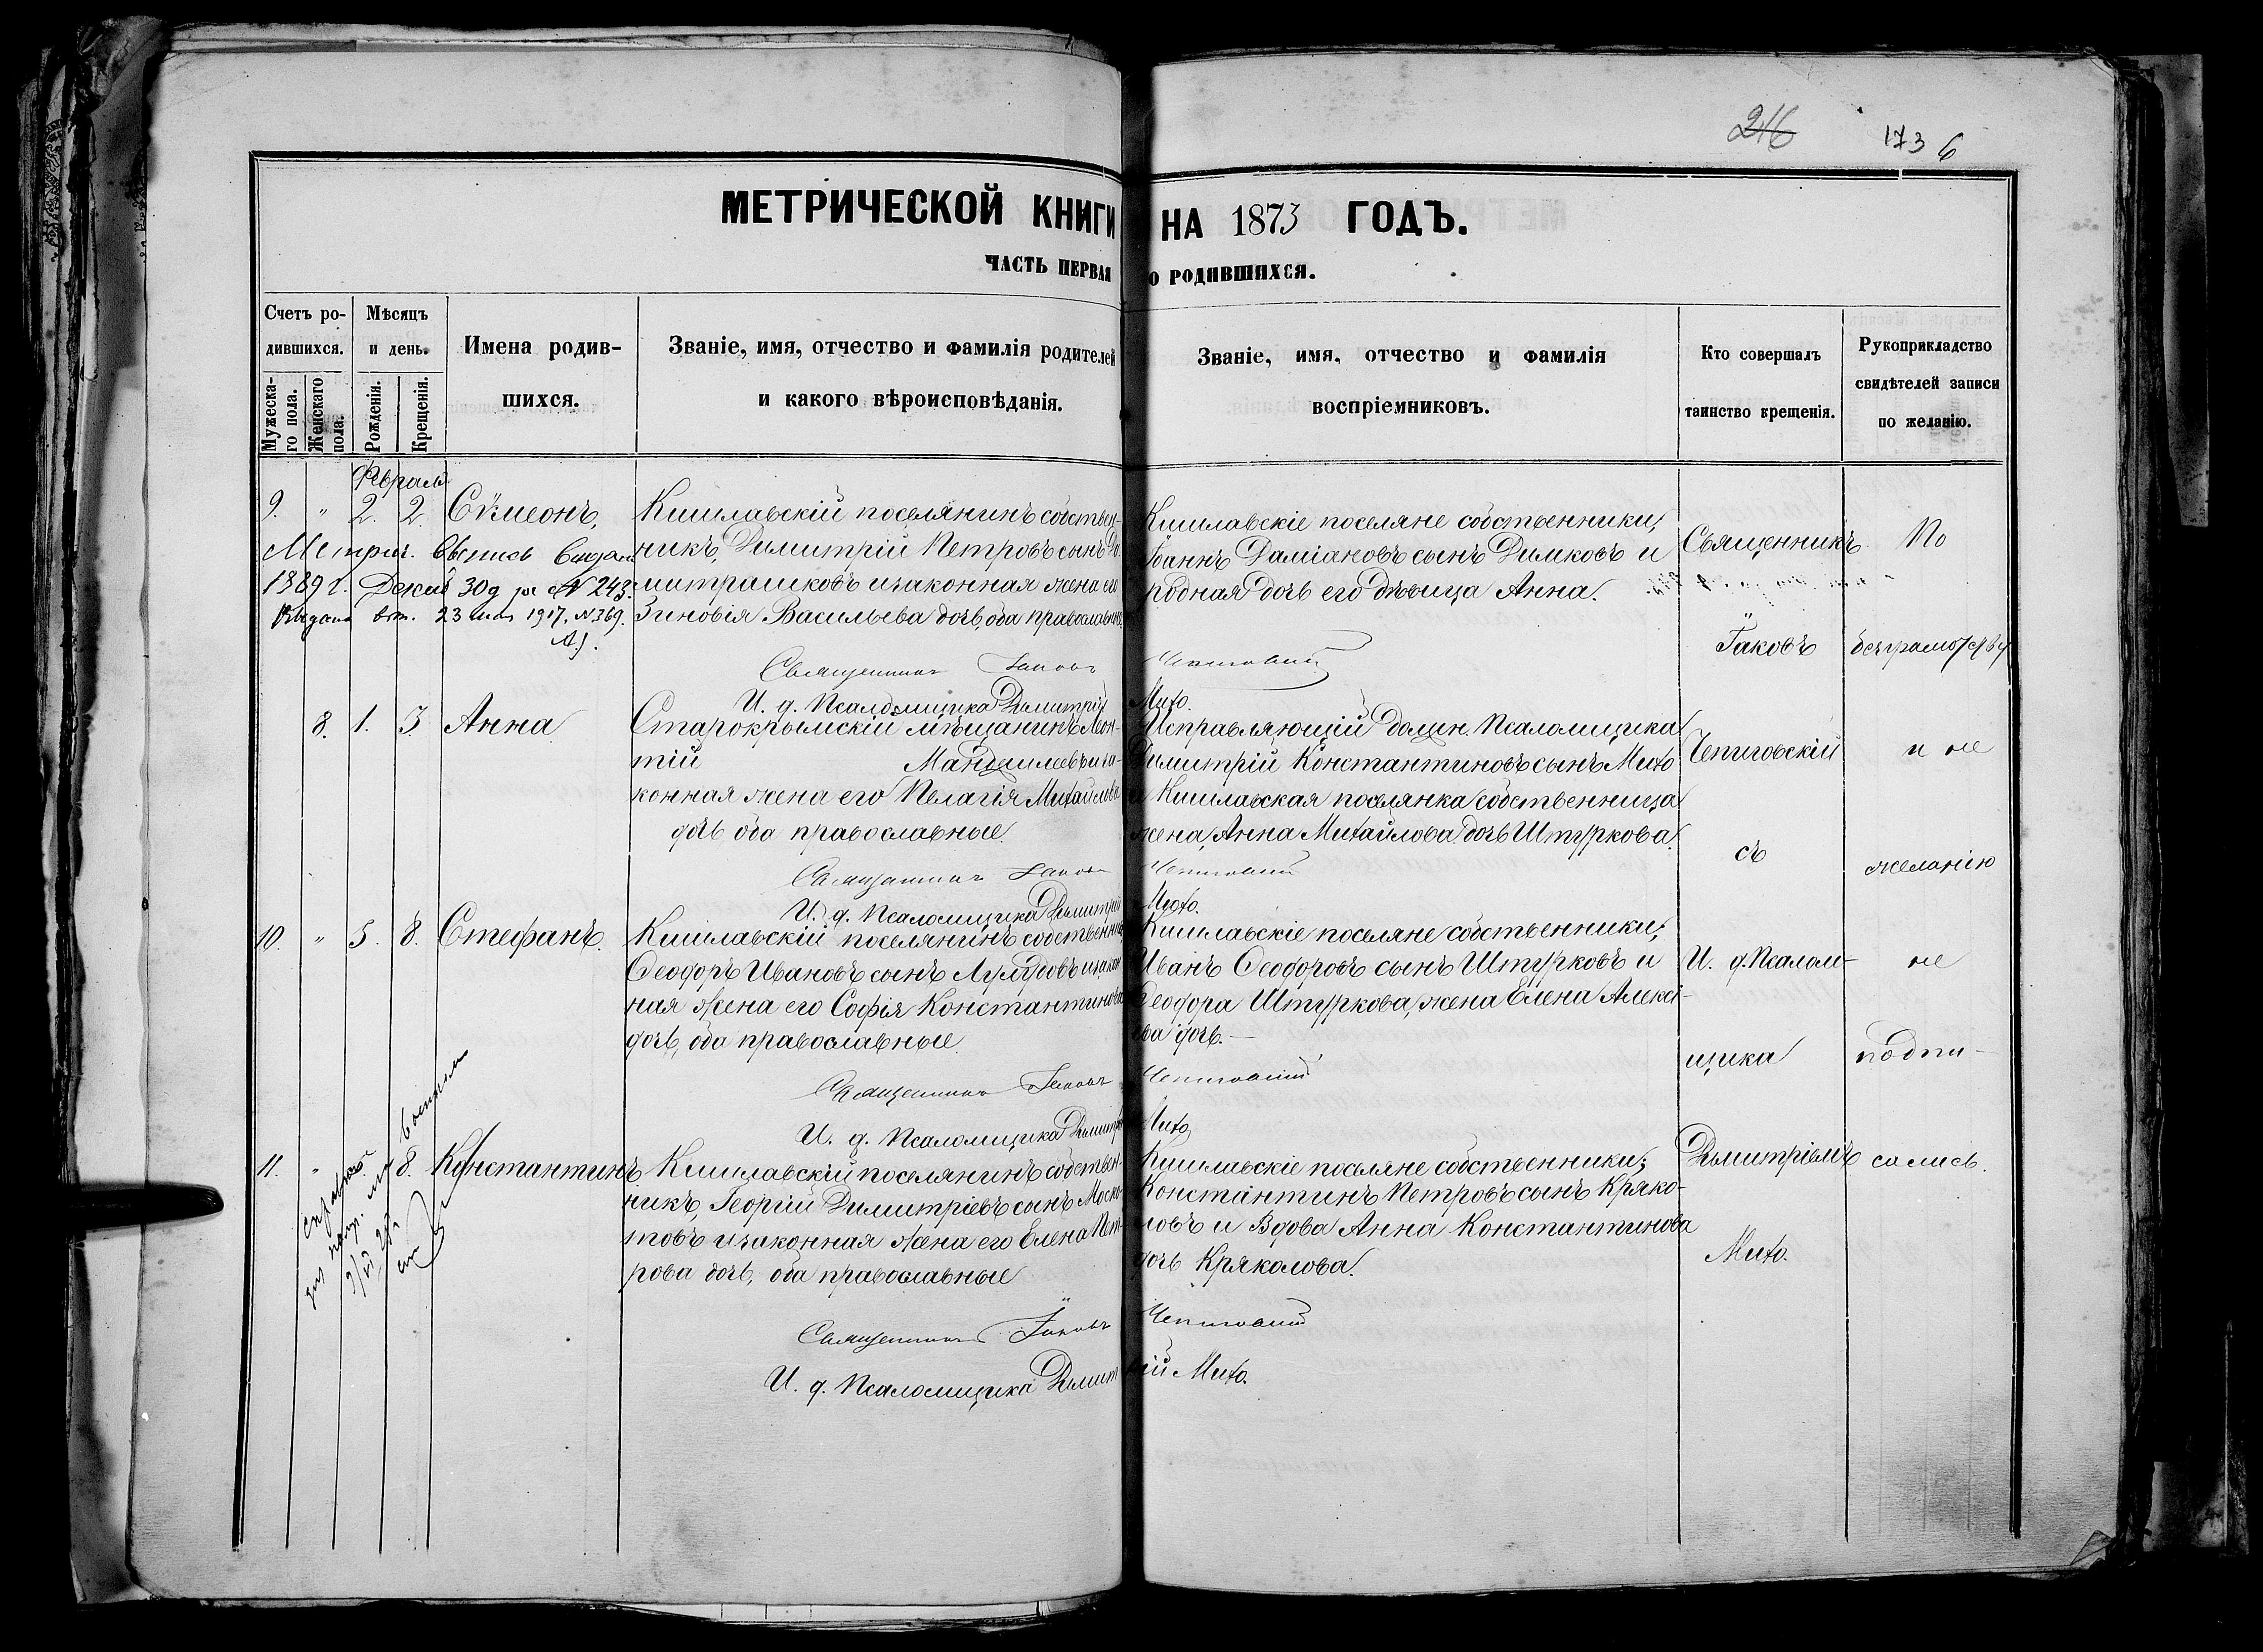 246 173 6
МЕТРИЧЕСКОЙ КНИГИ НА 1873 ГОДЪ.
ЧАСТЬ ПЕРВАЯ О РОДИВШИХСЯ.
Счетъ ро-
дившихся.
Мужеска-
го пола.
Женскаго
пола.
Мѣсяцъ
и день.
Рожденія.
Крещенія.
Имена родив-
шихся.
Званіе, имя, отчество и фамилія родителей
и какого вѣроисповѣданія.
Званіе, имя, отчество и фамилія
воспріемниковъ.
Кто совершалъ
таинство крещенія.
Рукоприкладство
свидѣтелей записи
по желанію.
Февраль
9. " 2. 2. Сѵмеонъ,
Метрич. выпись выдана
1889 г. Декаб 30 д за № 243.
Выдана вт. 23 мая 1917. № 369.
Кишлавскій поселянинъ собствен-
никъ, Димитрій Петровъ сынъ Ди-
митрашковъ и законная жена его
Зиновія Васильева дочь, оба православные
Кишлавскіе поселяне собственники,
Іоаннъ Даміановъ сынъ Димковъ и
родная дочь его дѣвица Анна.
Священникъ Іаковъ Чепиговскій
И. д. Псаломщика Димитрій Михо.
8. 1. 3. Анна
Старокрымскій мѣщанинъ Леон-
тій и за-
конная жена его Пелагія Михайлова
дочь оба православные.
Исправляющій должн. Псаломщика
Димитрій Константиновъ сынъ Михо
и Кишлавская поселянка собственница
жена, Анна Михайлова дочь Штуркова.
Священникъ Іаковъ Чепиговскій
И. д. Псаломщика Димитрій Михо.
10. " 5. 8. Стефанъ.
Кишлавскій поселянинъ собственникъ
Ѳеодоръ Ивановъ сынъ и закон
ная жена его Софія Константинова
дочь, оба православные
Кишлавскіе поселяне собственники;
Иванъ Ѳеодоровъ сынъ Штурковъ и
Ѳеодора Штуркова, жена Елена Алексі-
ева дочь.—
Священникъ Іаковъ Чепиговскій
И. д. Псаломщика Димитрій Михо
11. " 8. Константинъ
Кишлавскій поселянинъ собствен-
никъ, Георгій Димитріевъ сынъ
товъ и законная жена его Елена Пет-
рова дочь, оба православные
Кишлавскіе поселяне собственники;
Константинъ Петровъ сынъ Кряко-
ловъ и Вдова Анна Константинова
дочь Кряколова.
Священникъ Іаковъ Чепиговскій
И. д. Псаломщика Димитрій Михо.
Священникъ
Іаковъ
Чепиговскій
съ
И. д. Псалом-
щика
Димитріемъ
Михо.
По
безграмотству
и не
желанію
не
подпи-
сались.